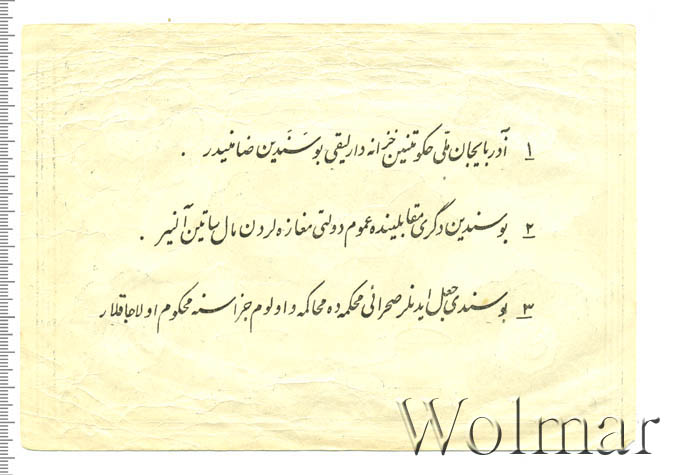 ۱ آذربایجان ملّی حکومتینین خزانه داریلیقی بو سَنَدین ضامنیدر .
۲ بو سندین دگری مقابلینده عموم دولتی مغازه لردن مال ساتین آلنیر .
۳ بو سندی جعل ایدنلر صحرائی محکمه ده محاکمه و اولوم جزاسنه محکوم اولاجاقلار
Wolmar